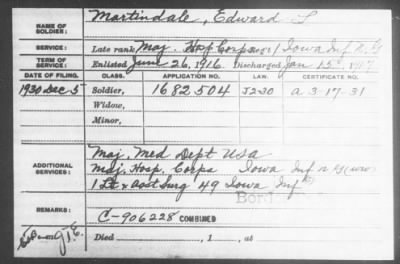 NAME OF SOLDIER: Martindale, Edward L
SERVICE: Late rank, Maj. Hosp Corps Regt 1 Iowa Inf N. G
TERM OF SERVICE: Enlisted June 26, 1916. Discharged Jan 15, 1917
DATE OF FILING. CLASS. APPLICATION NO. LAW. CERTIFICATE NO.
1930 Dec 5 Soldier, 1682504 J2-30 a 3-17-31
Widow,
Minor,
ADDITIONAL SERVICES: Maj. Med Dept USA
Maj. Hosp. Corps Iowa Inf N G
1 Lt & Asst Surg 49 Iowa Inf
REMARKS: C-906228 COMBINED
Died , 1 , at